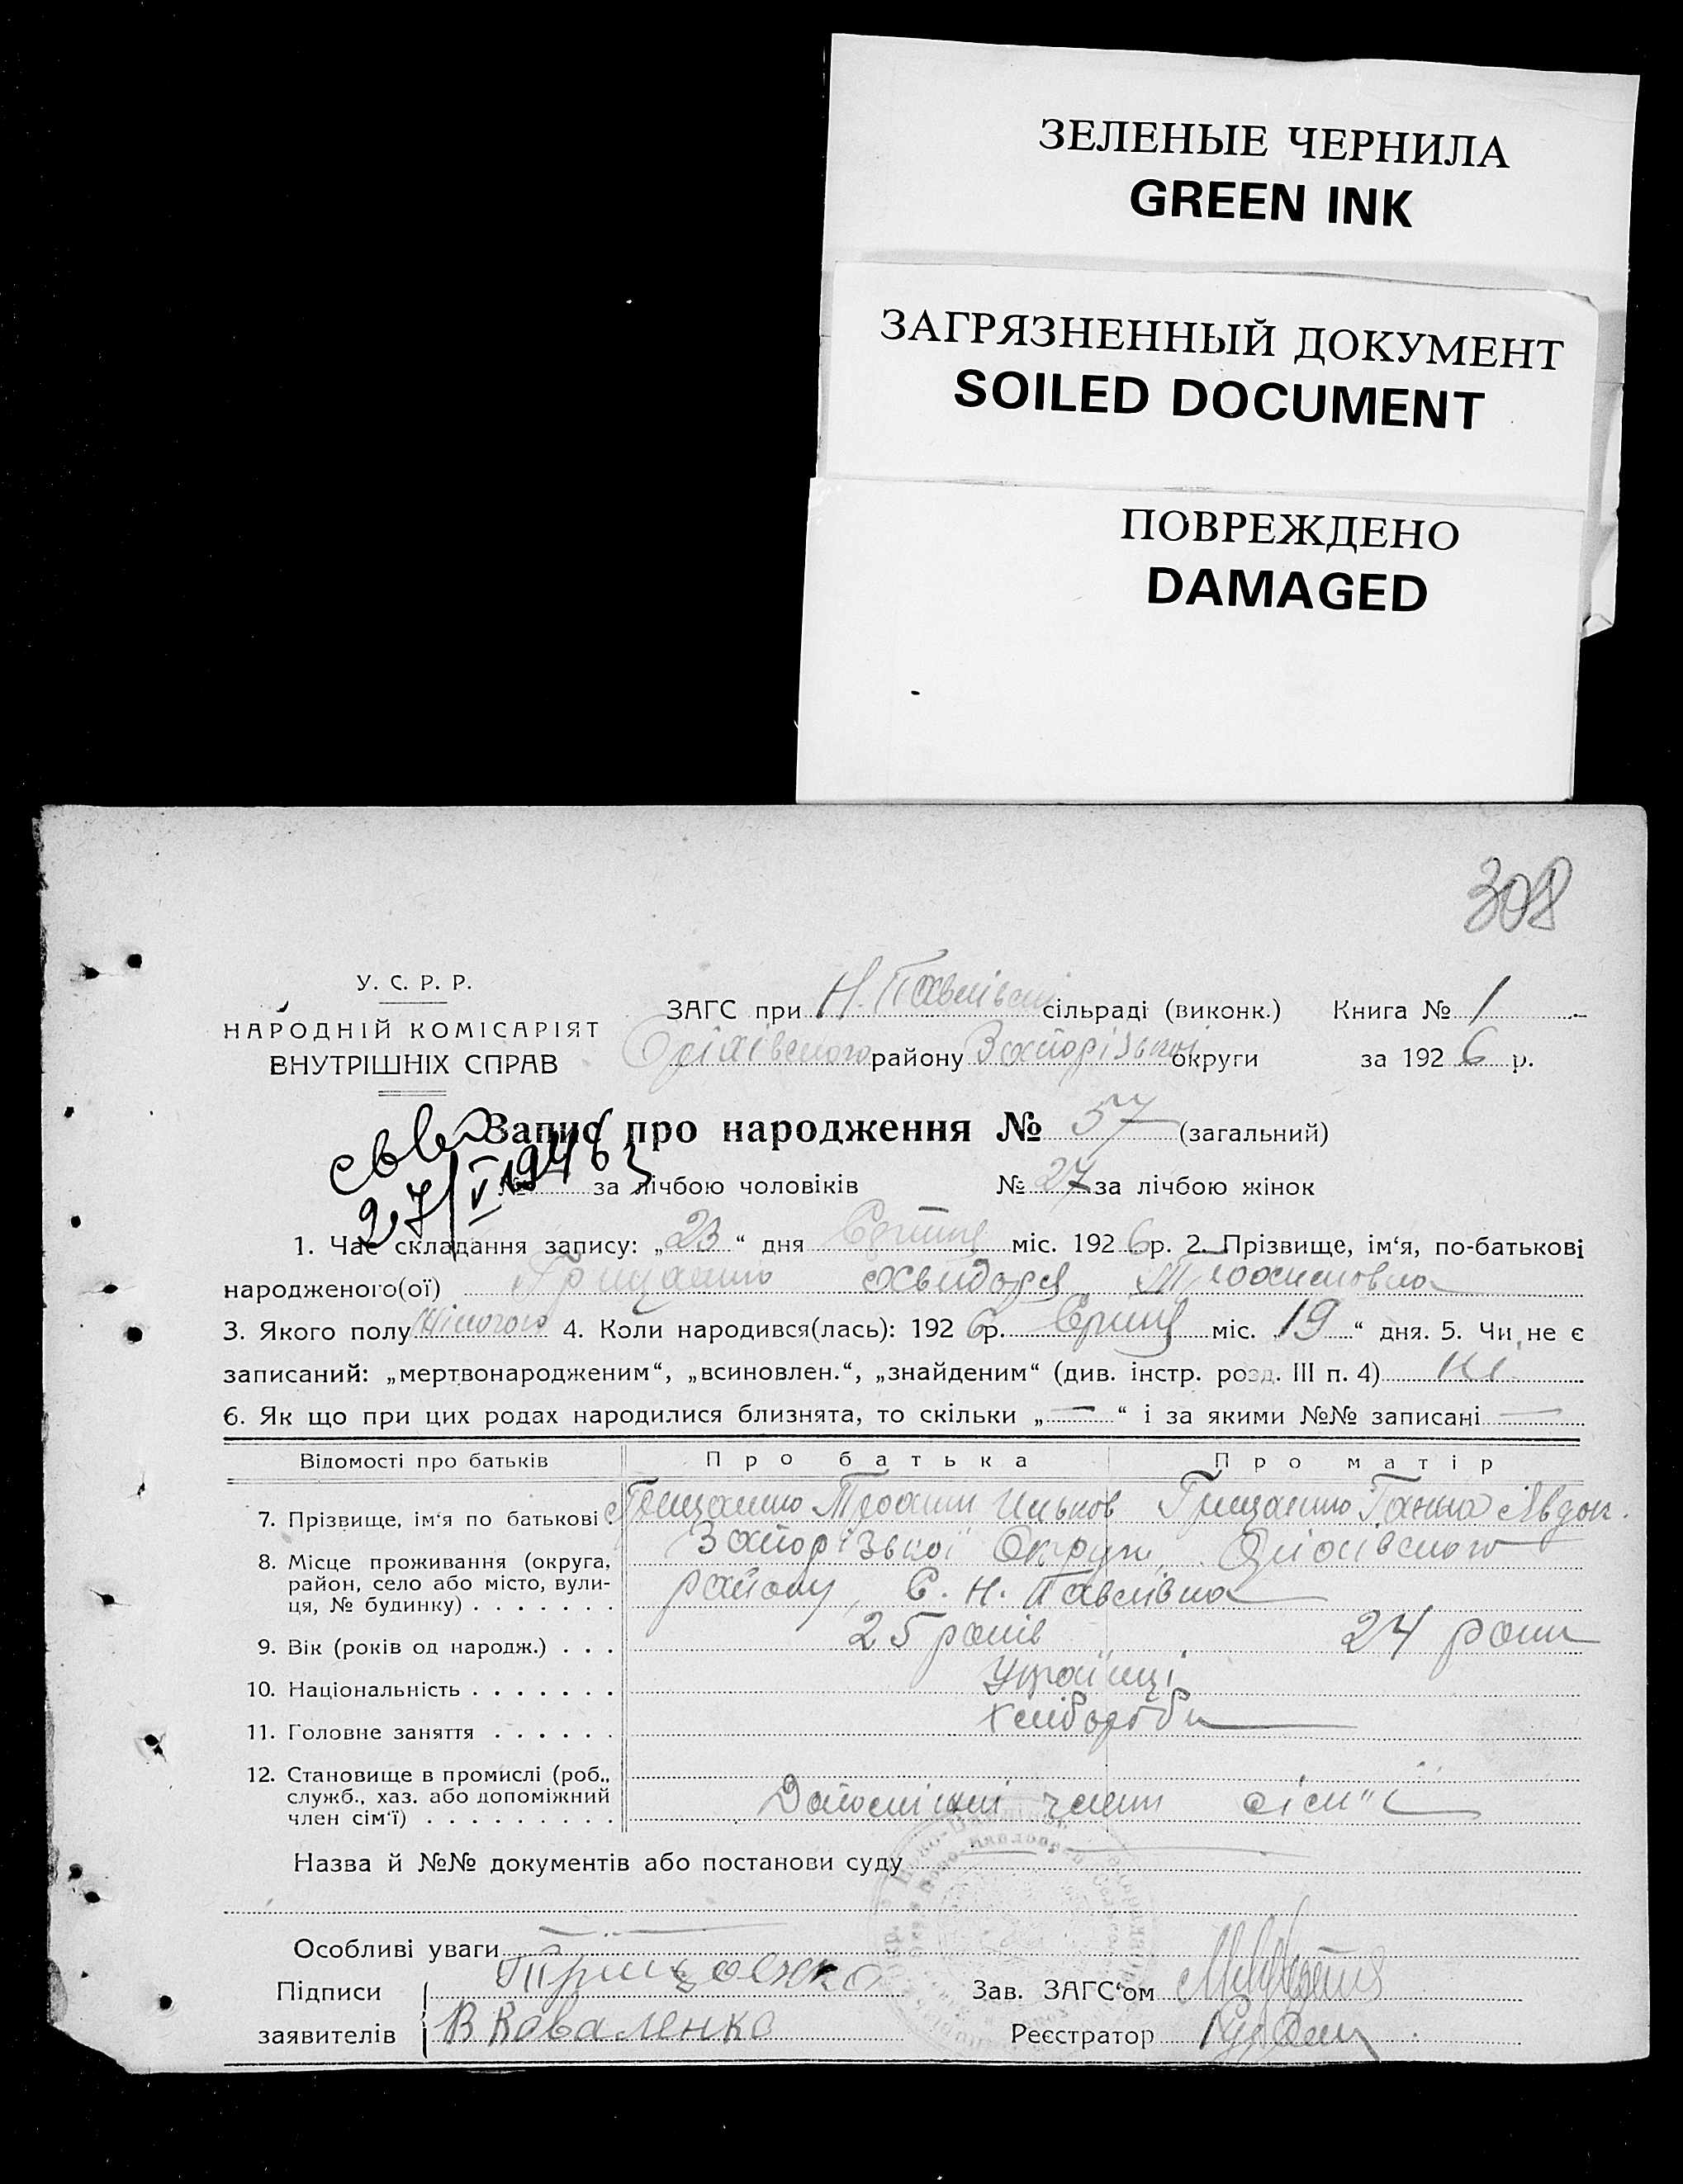 ЗЕЛЕНЫЕ ЧЕРНИЛА
GREEN INK
ЗАГРЯЗНЕННЫЙ ДОКУМЕНТ
SOILED DOCUMENT
ПОВРЕЖДЕНО
DAMAGED
308
У. С. Р. Р.
НАРОДНІЙ КОМІСАРІЯТ
ВНУТРІШНІХ СПРАВ
ЗАГС при Н. Павлівскі сільраді (виконк.) Книга № 1
Оріхівського району Запорізької округи за 1926 р.
Запис про народження № 57 (загальний)
27/V 1946
№ за лічбою чоловіків № 27 за лічбою жінок
1. Час складання запису: „23“ дня Серпня міс. 1926 р. 2. Прізвище, ім‘я, по-батькові
народженого(ої) Грищенко Трохимовна
3. Якого полу Жіночого 4. Коли народився(лась): 1926 р. Серпня міс. „19“ дня. 5. Чи не є
записаний: „мертвонародженим“, „всиновлен.“, „знайденим“ (див. інстр. розд. III п. 4) Ні
6. Як що при цих родах народилися близнята, то скільки „—“ і за якими №№ записані —
Відомості про батьків Про батька Про матір
7. Прізвище, ім‘я по батькові: Грищенко Трохим Ильков Грищенко Ганна Явдок.
8. Місце проживання (округа, район, село або місто, вули-ця, № будинку) Запорізької Округи, Оріхівського
району, С. Н. Павлівка
9. Вік (років од народж.) 25 років 24 роки
10. Національність Українці
11. Головне заняття Хлібороби
12. Становище в промислі (роб., служб., хаз. або допоміжний член сім‘ї) Допоміжні члени сім"ї
Назва й №№ документів або постанови суду
Особливі уваги
Підписи Грищенко Зав. ЗАГС‘ом
заявителів В Коваленко Реєстратор